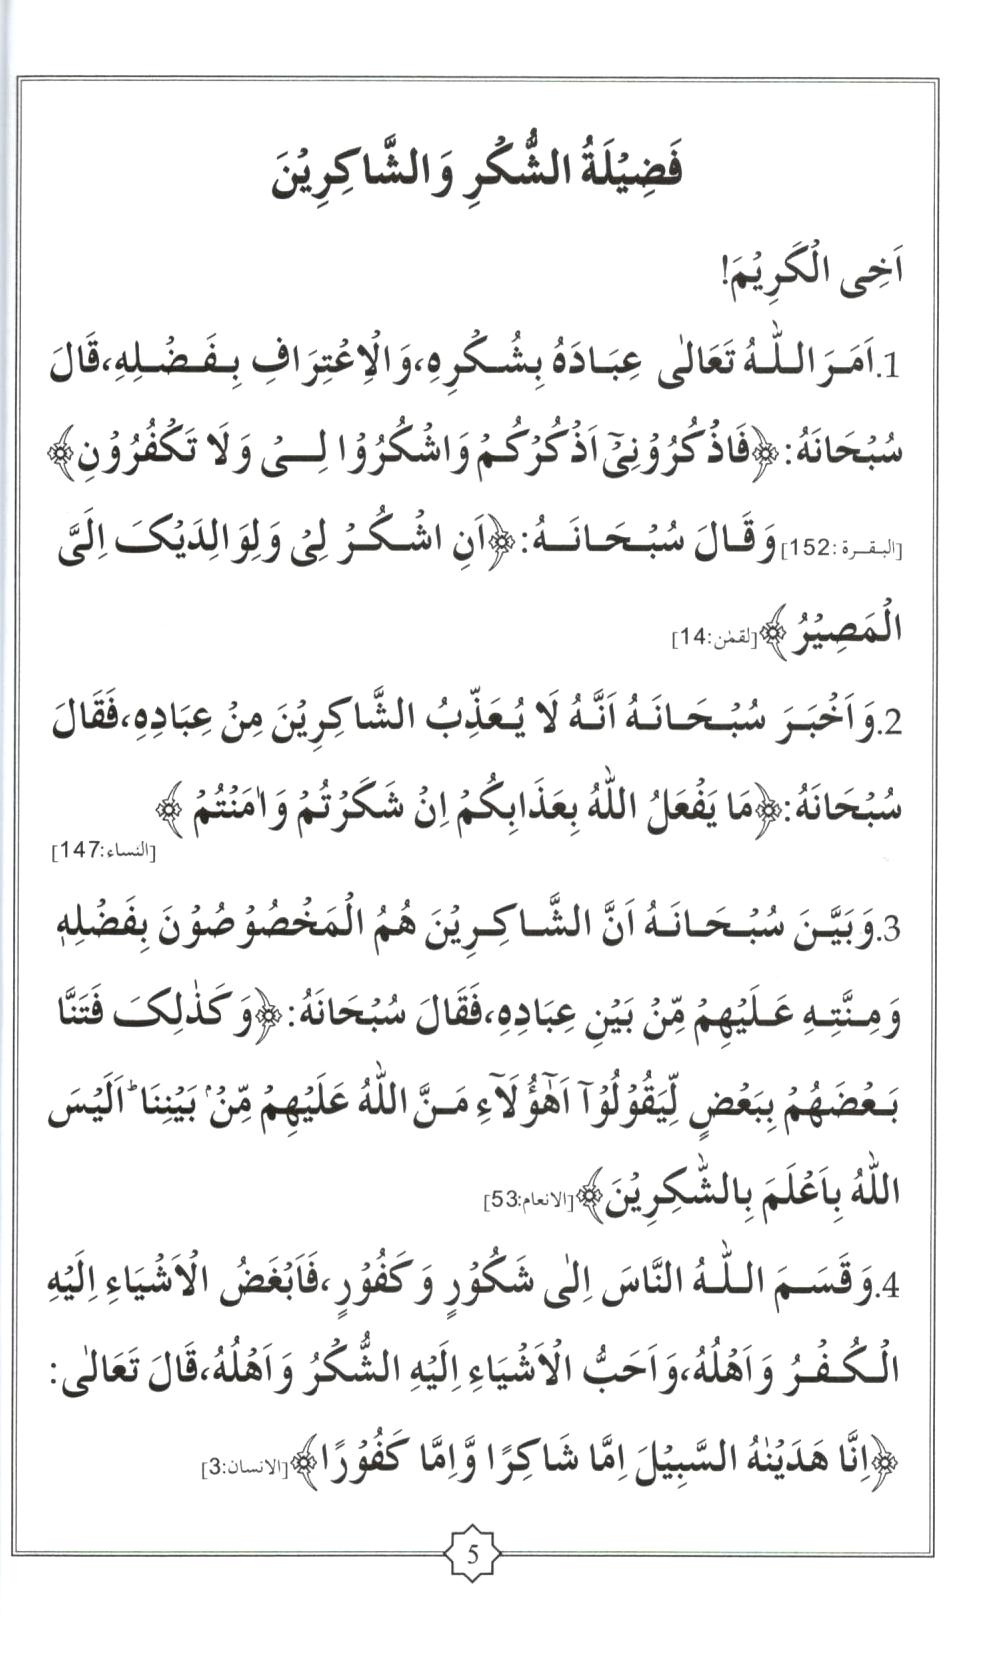 فَضِيْلَةُ الشُّكْرِ وَالشَّاكِرِيْنَ
اَخِى الْكَرِيْمَ!
1.اَمَرَ اللّٰهُ تَعَالٰى عِبَادَهُ بِشُكْرِهِ،وَالْاِعْتِرَافِ بِفَضْلِهِ،قَالَ
سُبْحَانَهُ:﴿فَاذْكُرُوْنِىْٓ اَذْكُرْكُمْ وَاشْكُرُوْا لِىْ وَلَا تَكْفُرُوْنِ﴾
[البقرة:152]وَقَالَ سُبْحَانَهُ:﴿اَنِ اشْكُرْ لِىْ وَلِوَالِدَيْكَ اِلَىَّ
الْمَصِيْرُ﴾[لقمٰن:14]
2.وَاَخْبَرَ سُبْحَانَهُ اَنَّهُ لَا يُعَذِّبُ الشَّاكِرِيْنَ مِنْ عِبَادِهِ،فَقَالَ
سُبْحَانَهُ:﴿مَا يَفْعَلُ اللّٰهُ بِعَذَابِكُمْ اِنْ شَكَرْتُمْ وَاٰمَنْتُمْ﴾
[النساء:147]
3.وَبَيَّنَ سُبْحَانَهُ اَنَّ الشَّاكِرِيْنَ هُمُ الْمَخْصُوْصُوْنَ بِفَضْلِهٖ
وَمِنَّتِهِ عَلَيْهِمْ مِّنْ بَيْنِ عِبَادِهِ،فَقَالَ سُبْحَانَهُ:﴿وَكَذٰلِكَ فَتَنَّا
بَعْضَهُمْ بِبَعْضٍ لِّيَقُوْلُوْٓا اَهٰٓؤُلَآءِ مَنَّ اللّٰهُ عَلَيْهِمْ مِّنْۢ بَيْنِنَا ؕ اَلَيْسَ
اللّٰهُ بِاَعْلَمَ بِالشّٰكِرِيْنَ﴾[الانعام:53]
4.وَقَسَمَ اللّٰهُ النَّاسَ اِلٰى شَكُوْرٍ وَكَفُوْرٍ،فَاَبْغَضُ الْاَشْيَاءِ اِلَيْهِ
الْكُفْرُ وَاَهْلُهُ،وَاَحَبُّ الْاَشْيَاءِ اِلَيْهِ الشُّكْرُ وَاَهْلُهُ،قَالَ تَعَالٰى:
﴿اِنَّا هَدَيْنٰهُ السَّبِيْلَ اِمَّا شَاكِرًا وَّاِمَّا كَفُوْرًا﴾[الانسان:3]
5